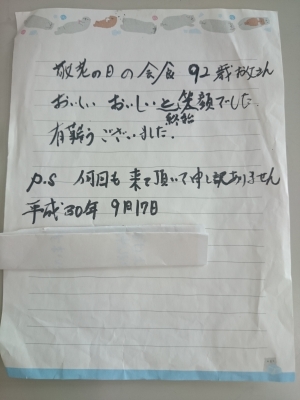 敬老の日の会食 92歳お父さん
おいしい おいしいと終始笑顔でした
有難うございました.
p.s 何回も来て頂いて申し訳ありません
平成30年 9月17日